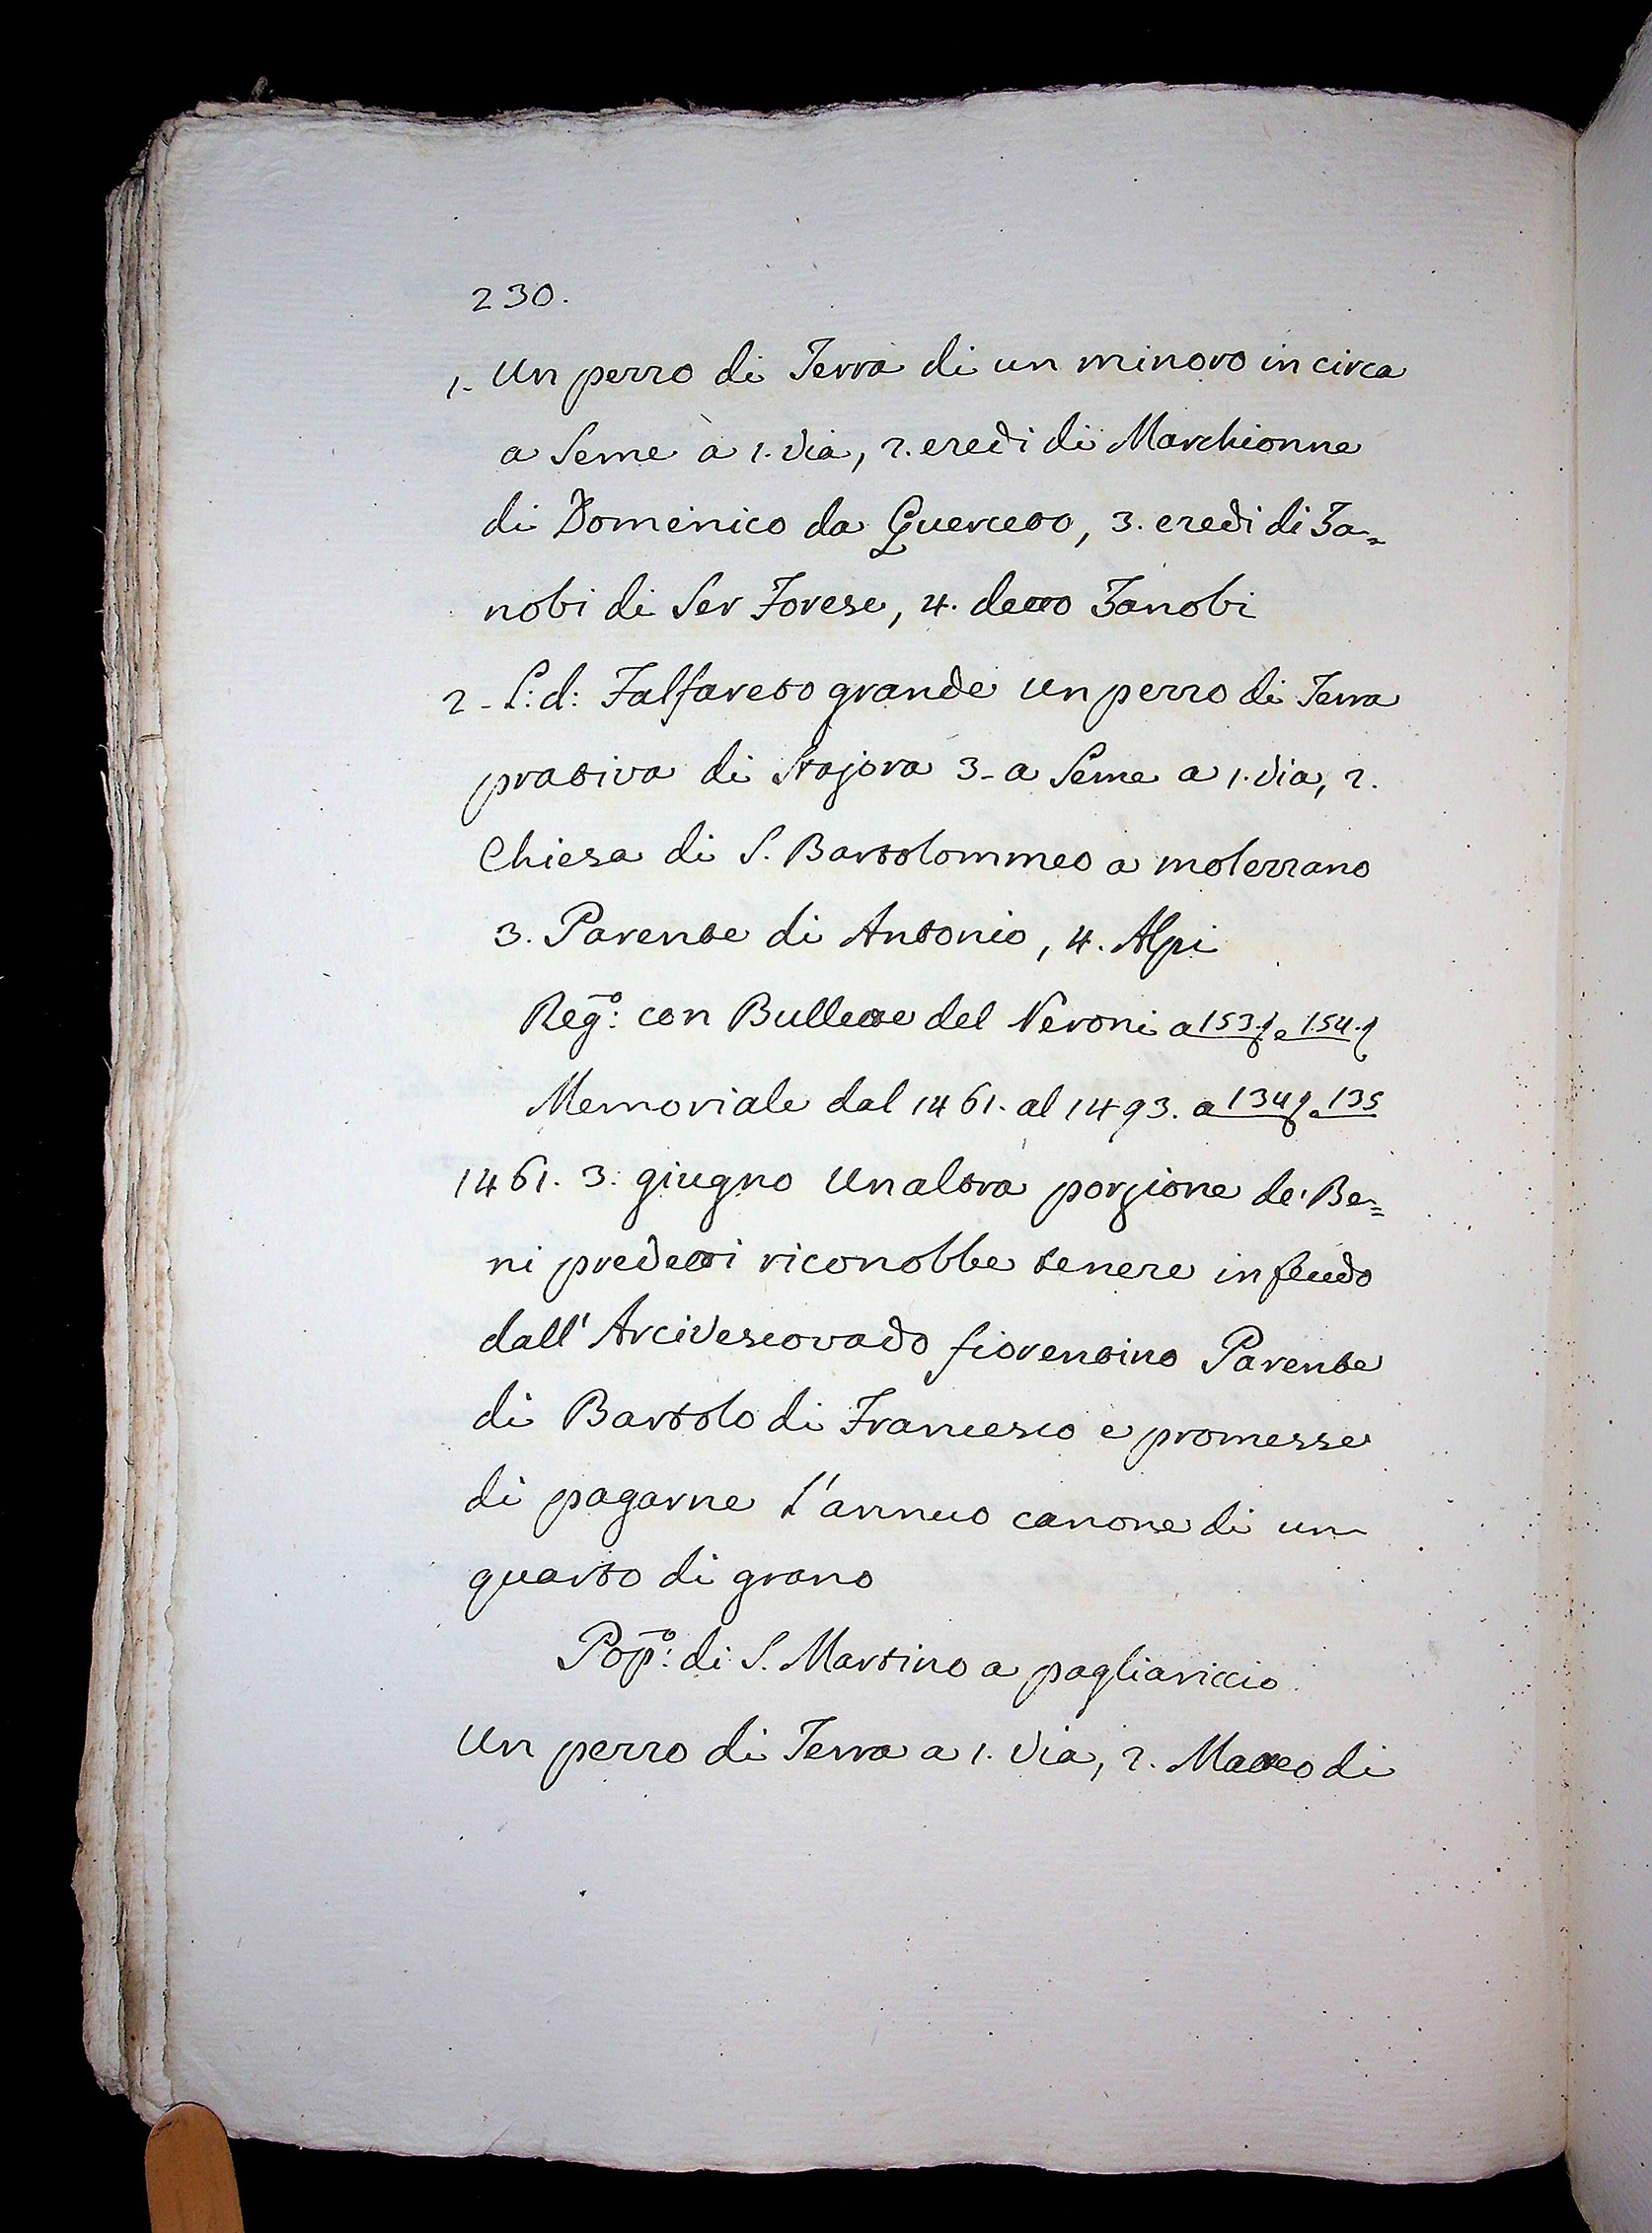 230.
1. Un pezzo di Terra di un minoro in circa
a Seme à 1. via, 2. eredi di Marchionne
di Domenico da Querceto, 3. eredi di Za=
nobi di Ser Forese, 4. detto Zanobi
2 - L: d: Falfareto grande un pezzo di Terra
prativa di Stajora 3 - a Seme a 1. via, 2.
Chiesa di S. Bartolommeo a molezzano
3. Parente di Antonio, 4. Alpi
Reg.o: con Bullette del Neroni a 153. e 154.
Memoriale dal 1461. al 1493. a 134 e 135
1461. 3. giugno Unaltra porzione de' Be=
ni predetti riconobbe tenere in feudo
dall' Arcivescovado fiorentino Parente
di Bartolo di Francesco e promesse
di pagarne l'annuo canone di un
quarto di grano
Pop.o: di S. Martino a pagliariccio
Un pezzo di Terra a 1. via, 2. Matteo di